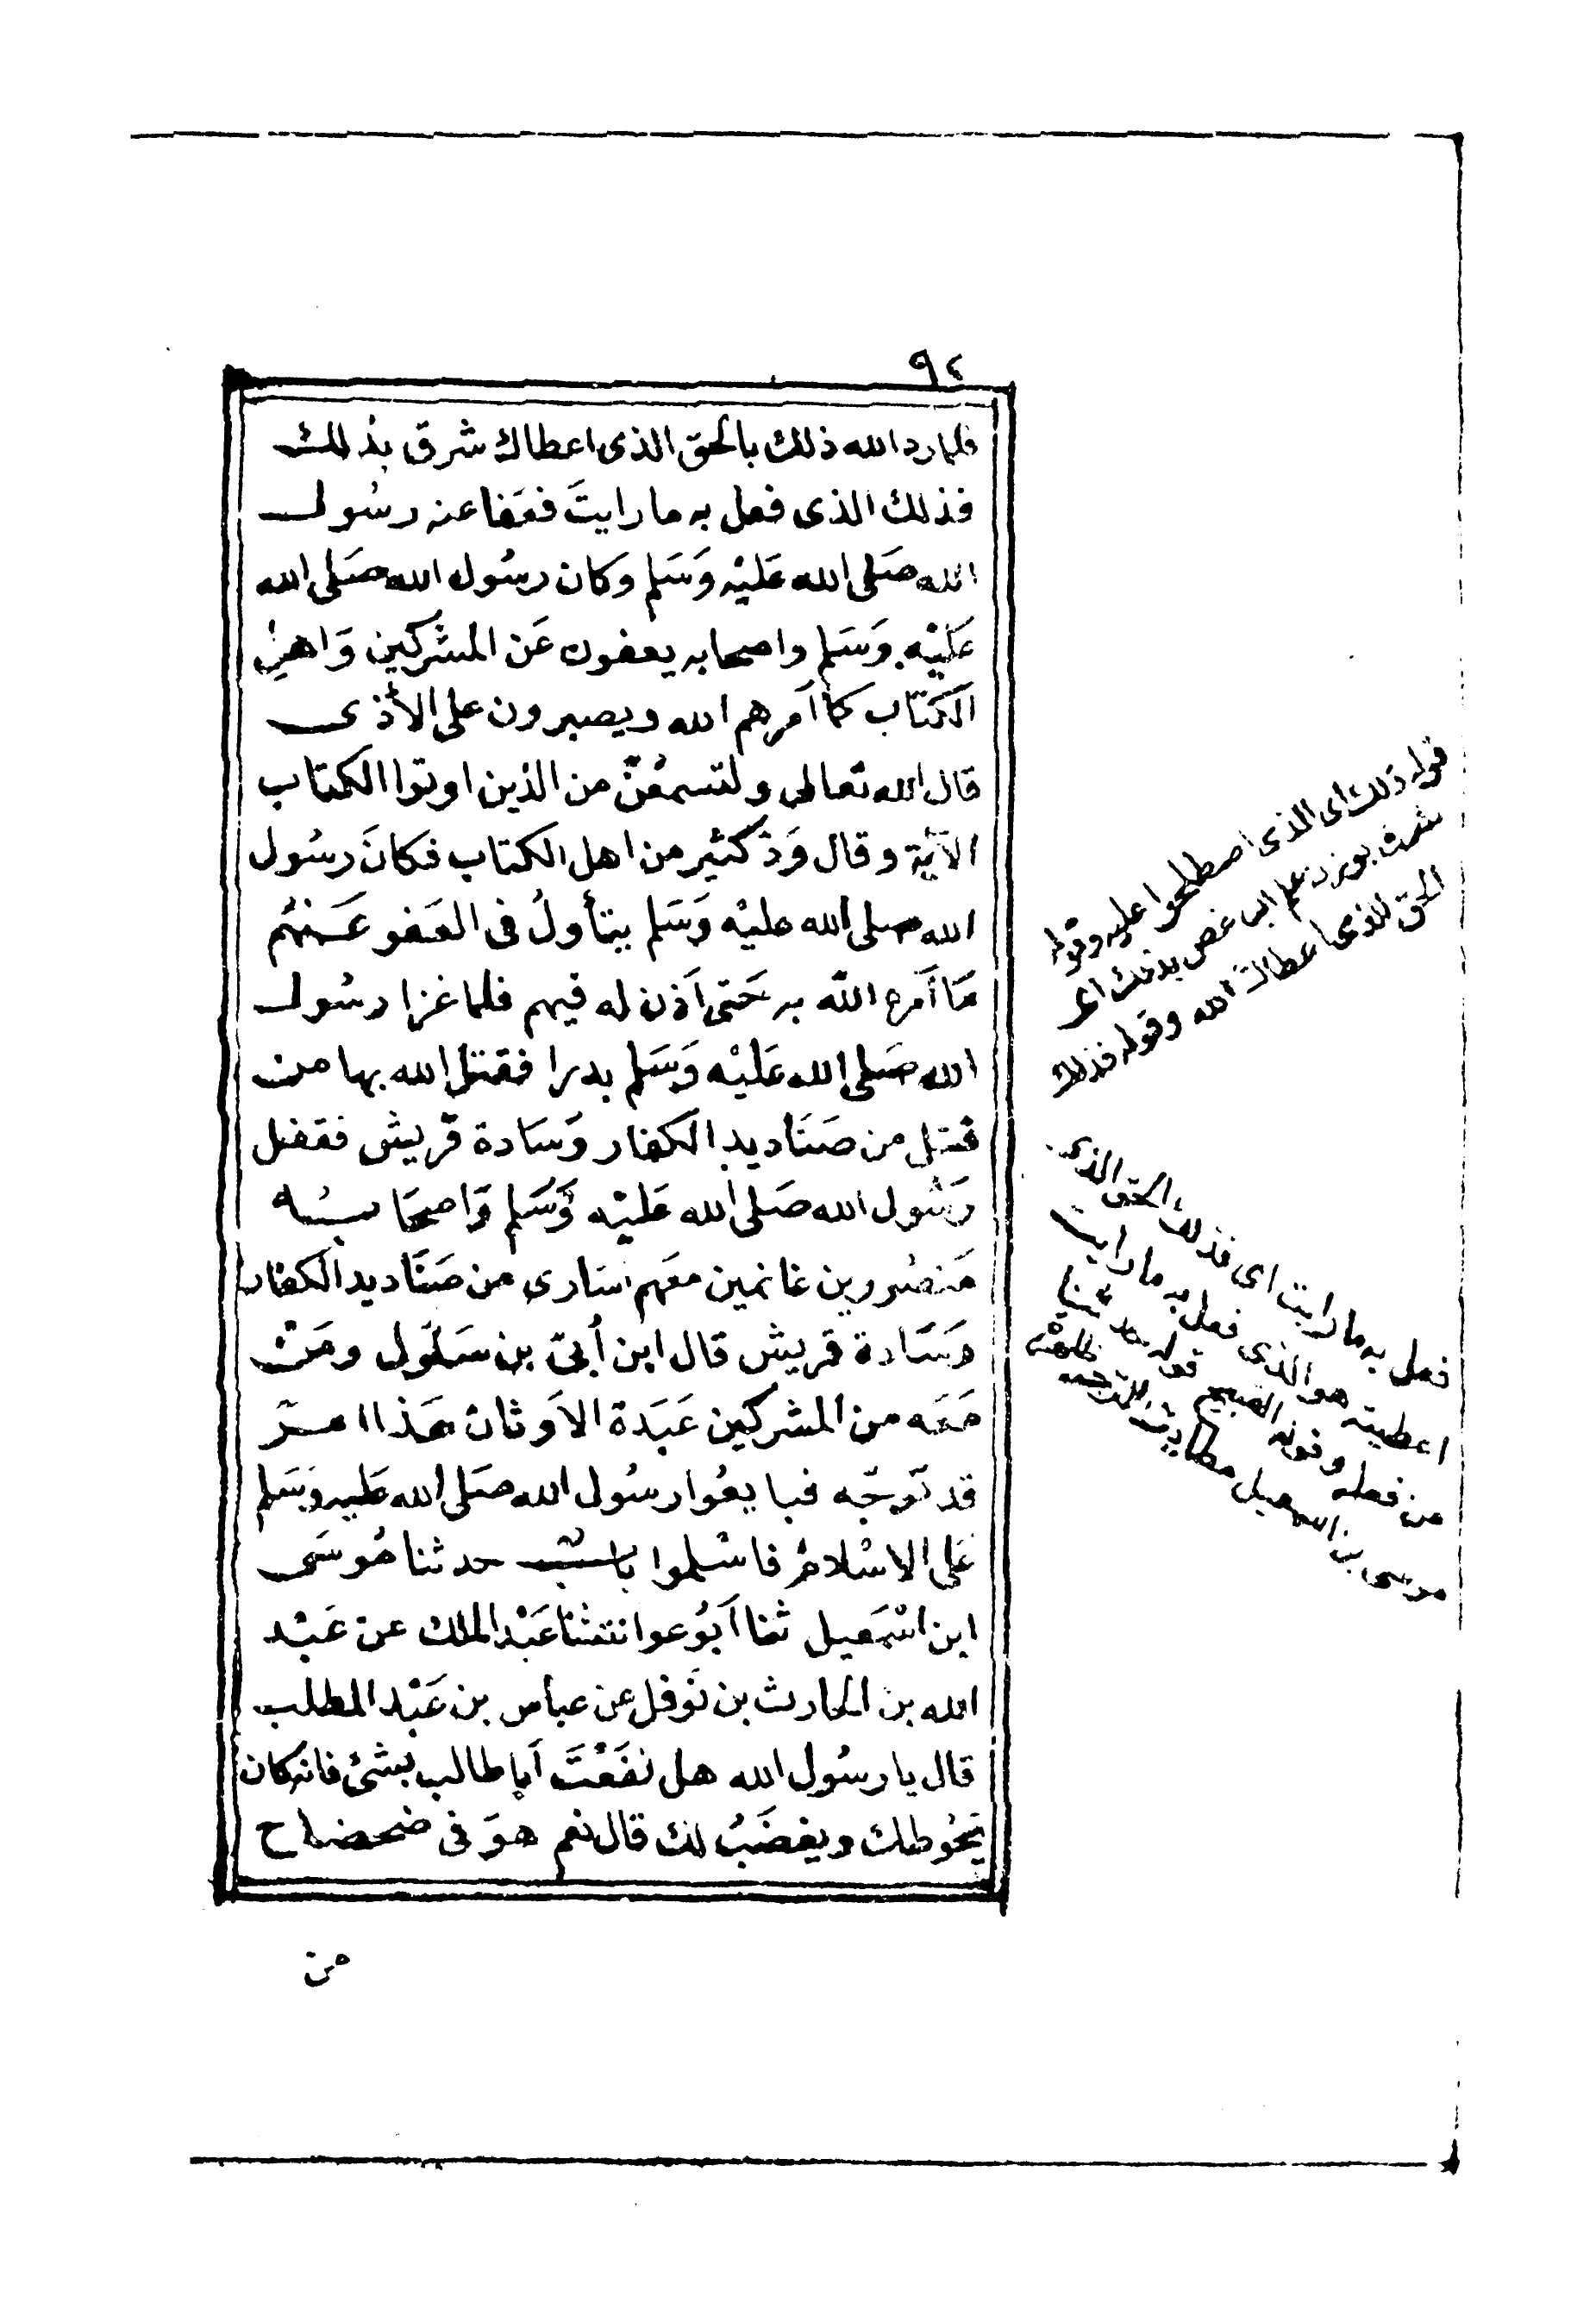 ٩٤
فلما رد الله ذلك بالحق الذى اعطاك شرق بذلك
فذلك الذى فعل به ما رايتَ فعَفا عنه رسُول
الله صَلى الله عَليْه وَسَلم وكان رسُول الله صَلى الله
عَليْه وَسَلم واصحابه يعفون عَن المشركين وَاهلِ
الكتاب كما اَمرهم الله ويصبرون على الأذى
قال الله تعالى ولتسمعُنّ من الذين اوتوا الكتاب
الآية وقال وَدّ كثير من اهل الكتاب فكانَ رسُول
الله صلى الله عليْه وَسَلم يتأولُ فى العَفو عَنهُم
مَا اَمره الله به حَتى اَذن له فيهم فلما غزا رسُول
الله صَلى الله عَليْه وَسَلم بدرا فقتل الله بها من
قتل من صَنَاديد الكفار وَسَادة قريش فقفل
رَسُول الله صَلى الله عَليْه وَسَلم وَاصحَابه
مَنصُورين غانمين معَهم اسَارى من صَنَاديد الكفار
وَسَادة قريش قال ابن اُبىّ بن سَلول ومَن
مَعَه من المشركين عَبَدة الاَوثان هَذا امر
قد تَوجّه فبايعُوا رسُول الله صَلى الله عليه وسَلم
عَلى الاسْلام فاسْلموا باب حدثنا مُوسَى
ابن اسْمَعيل ثنا اَبوُ عوانة ثنا عَبْد الملك عن عَبْد
الله بن الحارث بن نَوفل عن عباس بن عَبْد المطلب
قال يا رسُول الله هل نفَعْتَ اَبا طالب بشئ فانه كان
يَحُوطك ويغضَبُ لك قال نعم هوَ فى ضحضاح
من
قوله ذلك اى الذى اصطلحوا عليه وقوله
شرق بذلك اى
الحق الذى اعطاك الله وقوله فذلك
فعل به ما رايت اى فذلك الحق الذى
اعطيته هو الذى فعل به ما رايت
من فعله وقوله القبيح قوله حدثنا
موسى بن اسمعيل مطابقة الترجمة